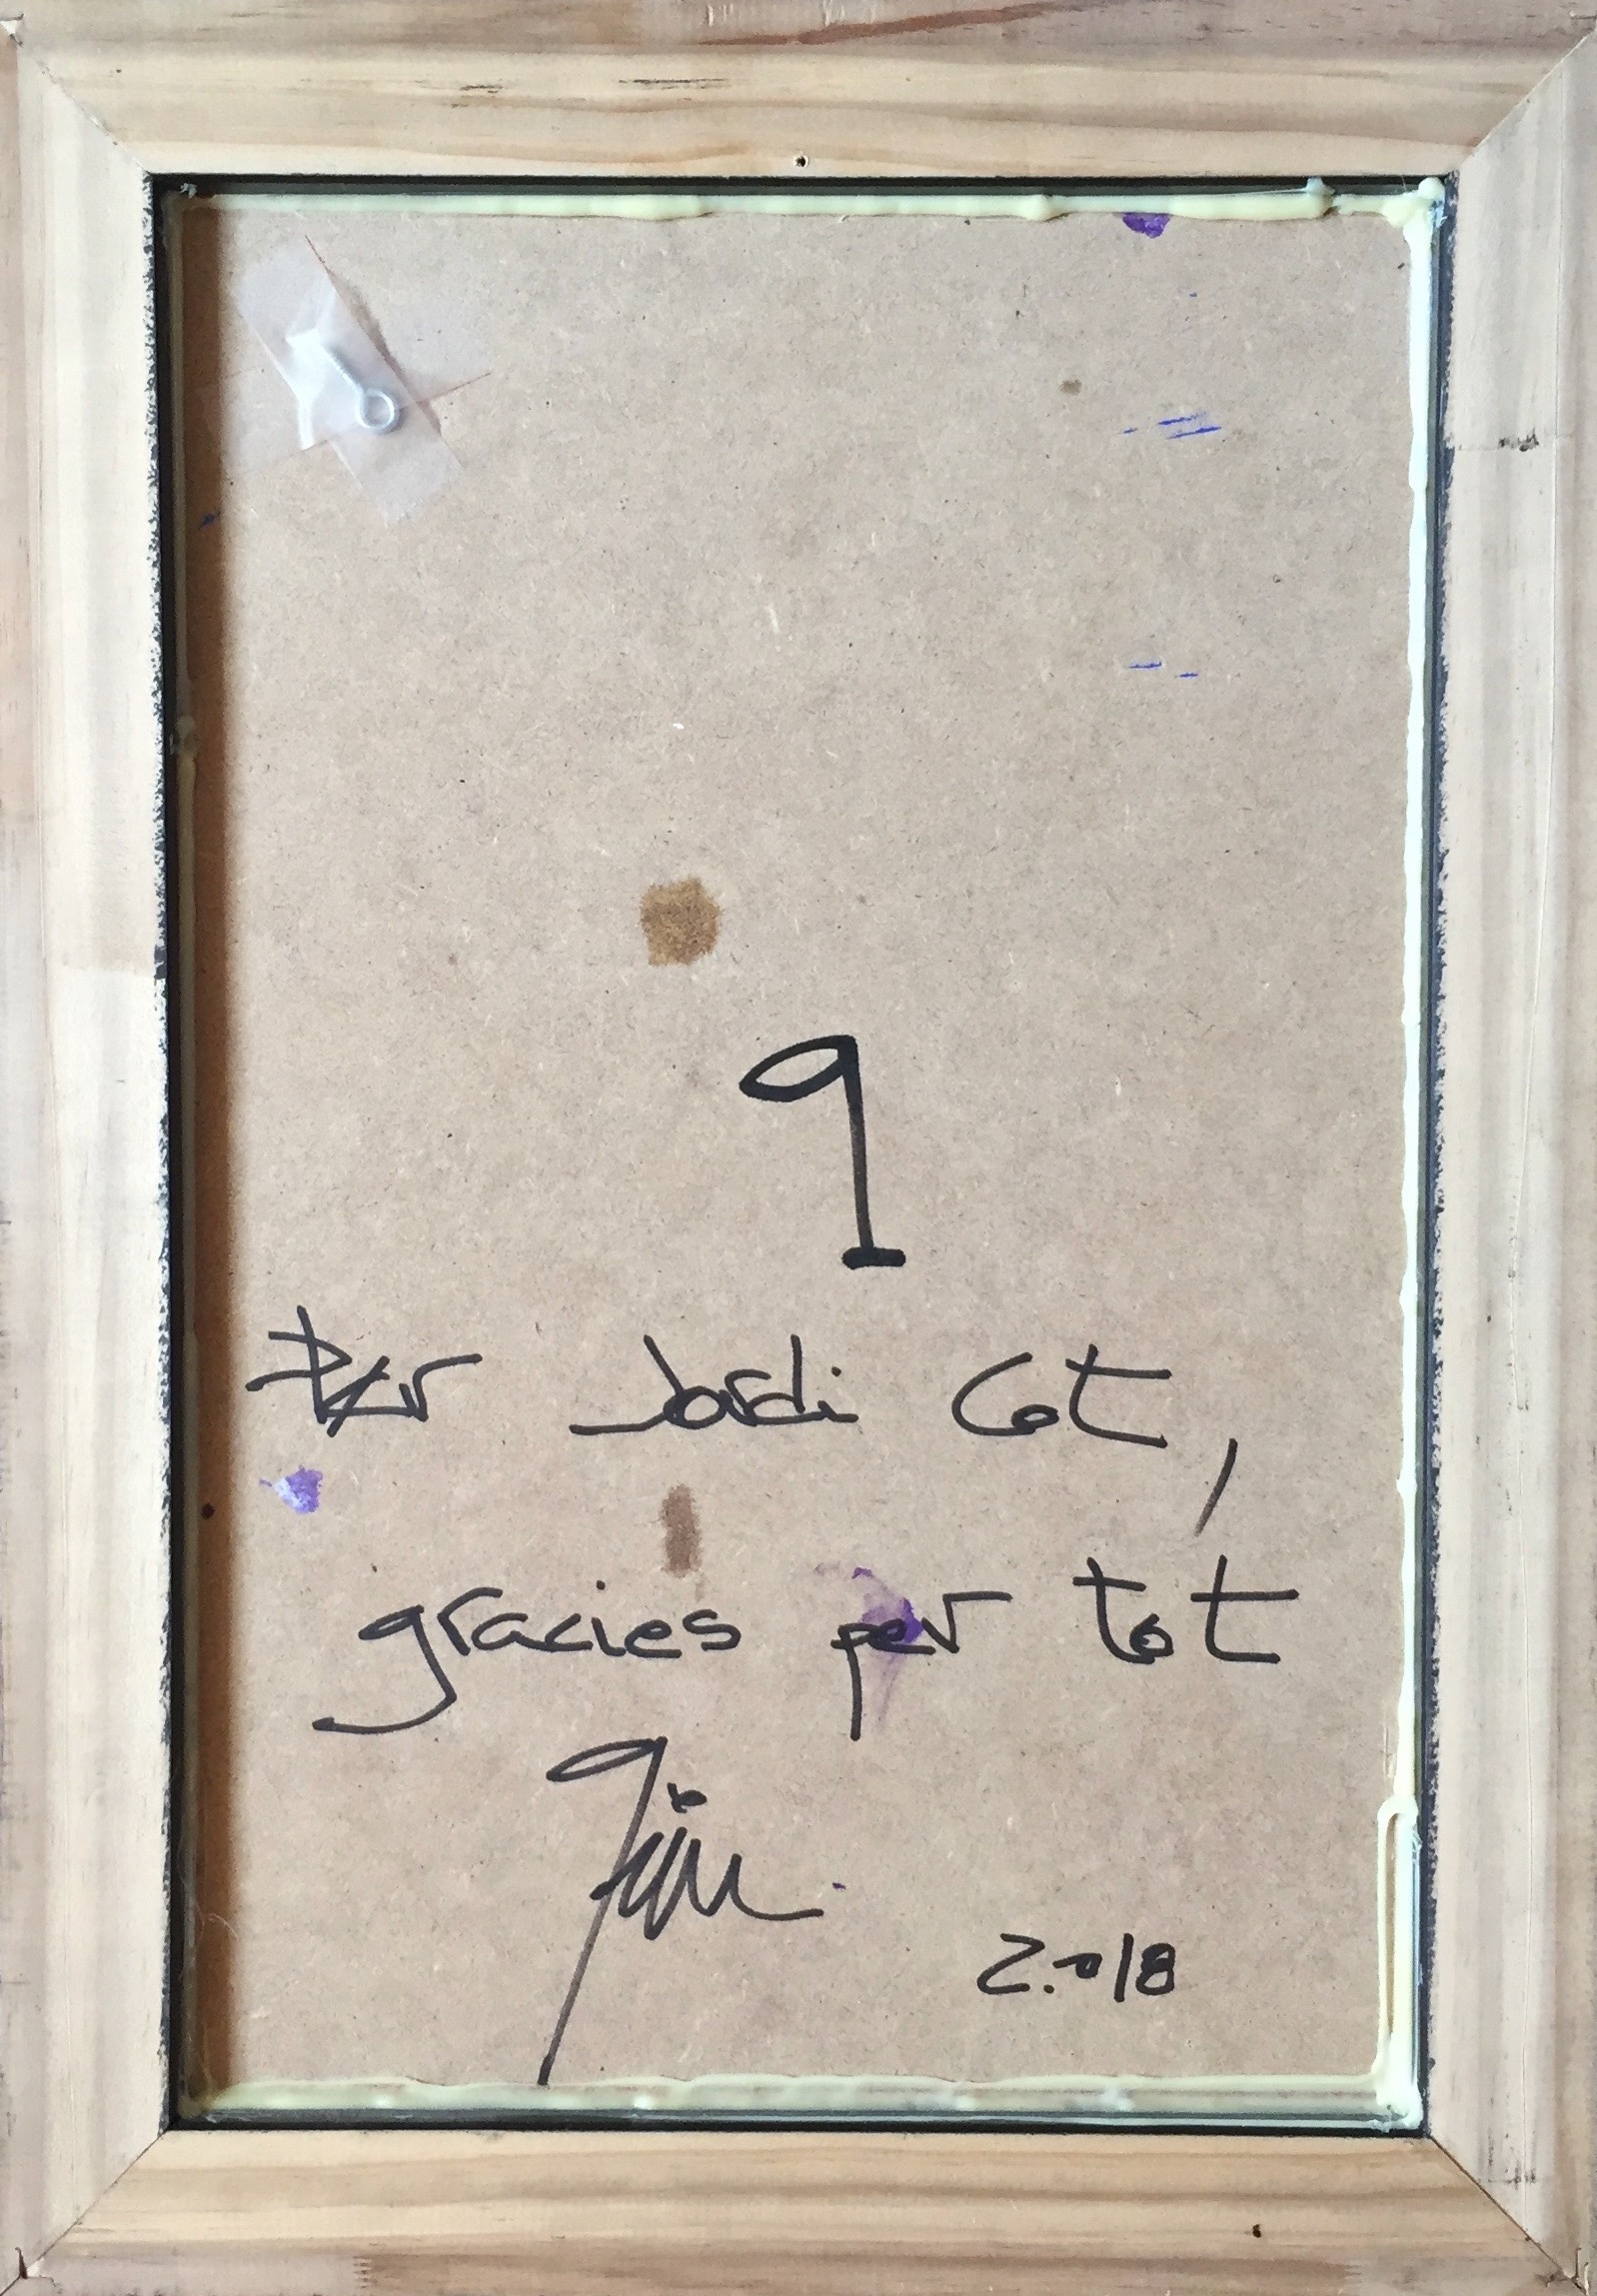 9
Per Jordi Cot,
gracies per tot
2.018